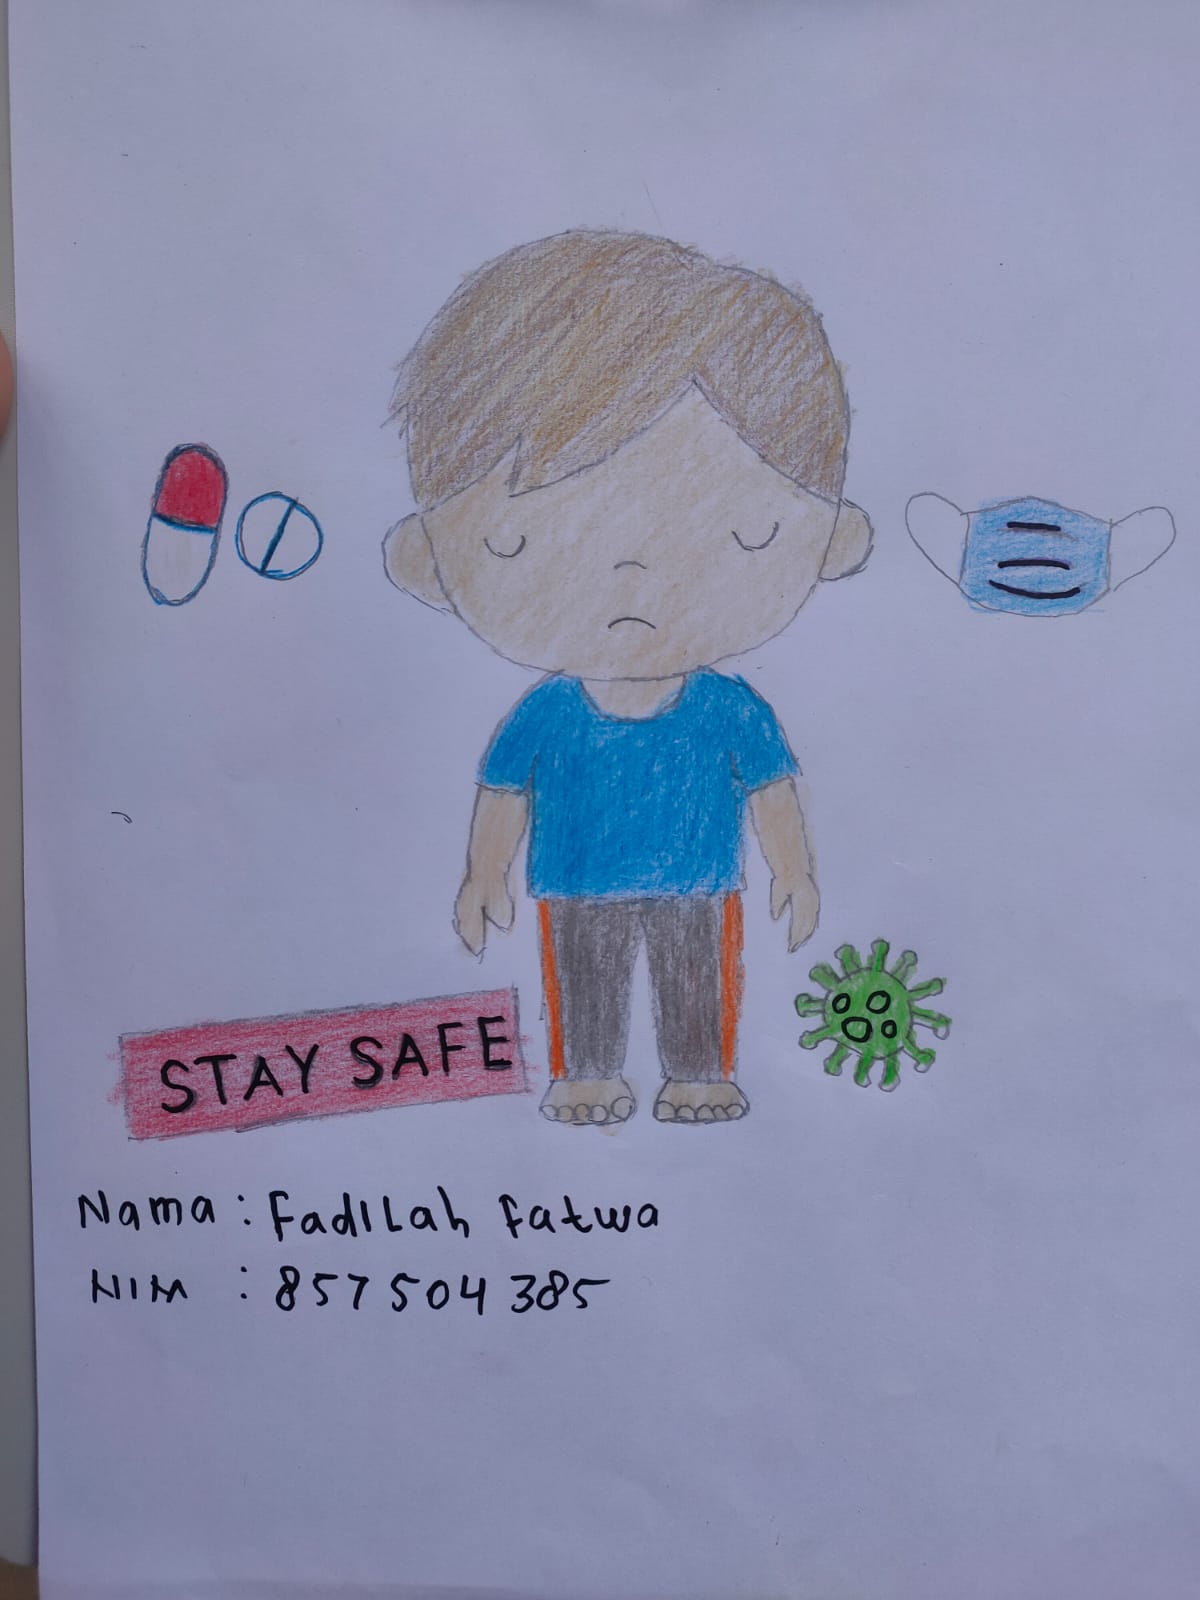 STAY SAFE
Nama : Fadilah Fatwa
NIM : 857504385